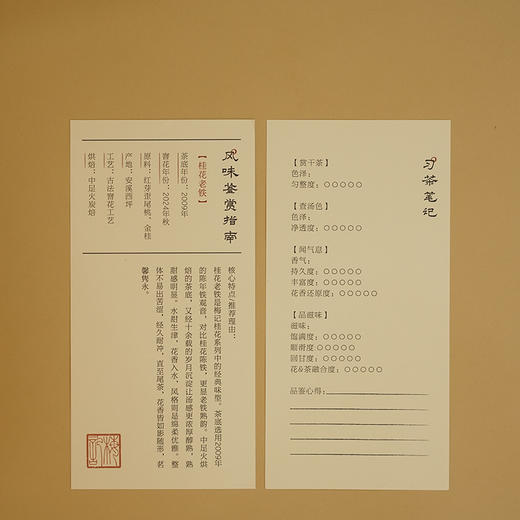 风味鉴赏指南
【桂花老铁】
茶底年份：2009年
窨花年份：2024年秋
原料：红芽歪尾桃、金桂
产地：安溪西坪
工艺：古法窨花工艺
烘焙：中足火炭焙
核心特点/推荐理由：
桂花老铁是梅记桂花系列中的经典味型。茶底选用2009年
的陈年铁观音，对比桂花陈铁，更显老铁熟韵。中足火烘
焙的茶底，又经十余载的岁月沉淀让汤感更浓厚醇熟，熟
甜感明显。水甜生津，花香入水，风格则是绵柔优雅。整
体不易出苦涩，经久耐冲，直至尾茶，花香皆如影随形，茗
馨隽永。
习茶笔记
【赏干茶】
色泽：
匀整度：○○○○○
【查汤色】
色泽：
净透度：○○○○○
【闻气息】
香气：
持久度：○○○○○
丰富度：○○○○○
花香还原度：○○○○○
【品滋味】
滋味：
饱满度：○○○○○
顺滑度：○○○○○
回甘度：○○○○○
花&茶融合度：○○○○○
品鉴心得：